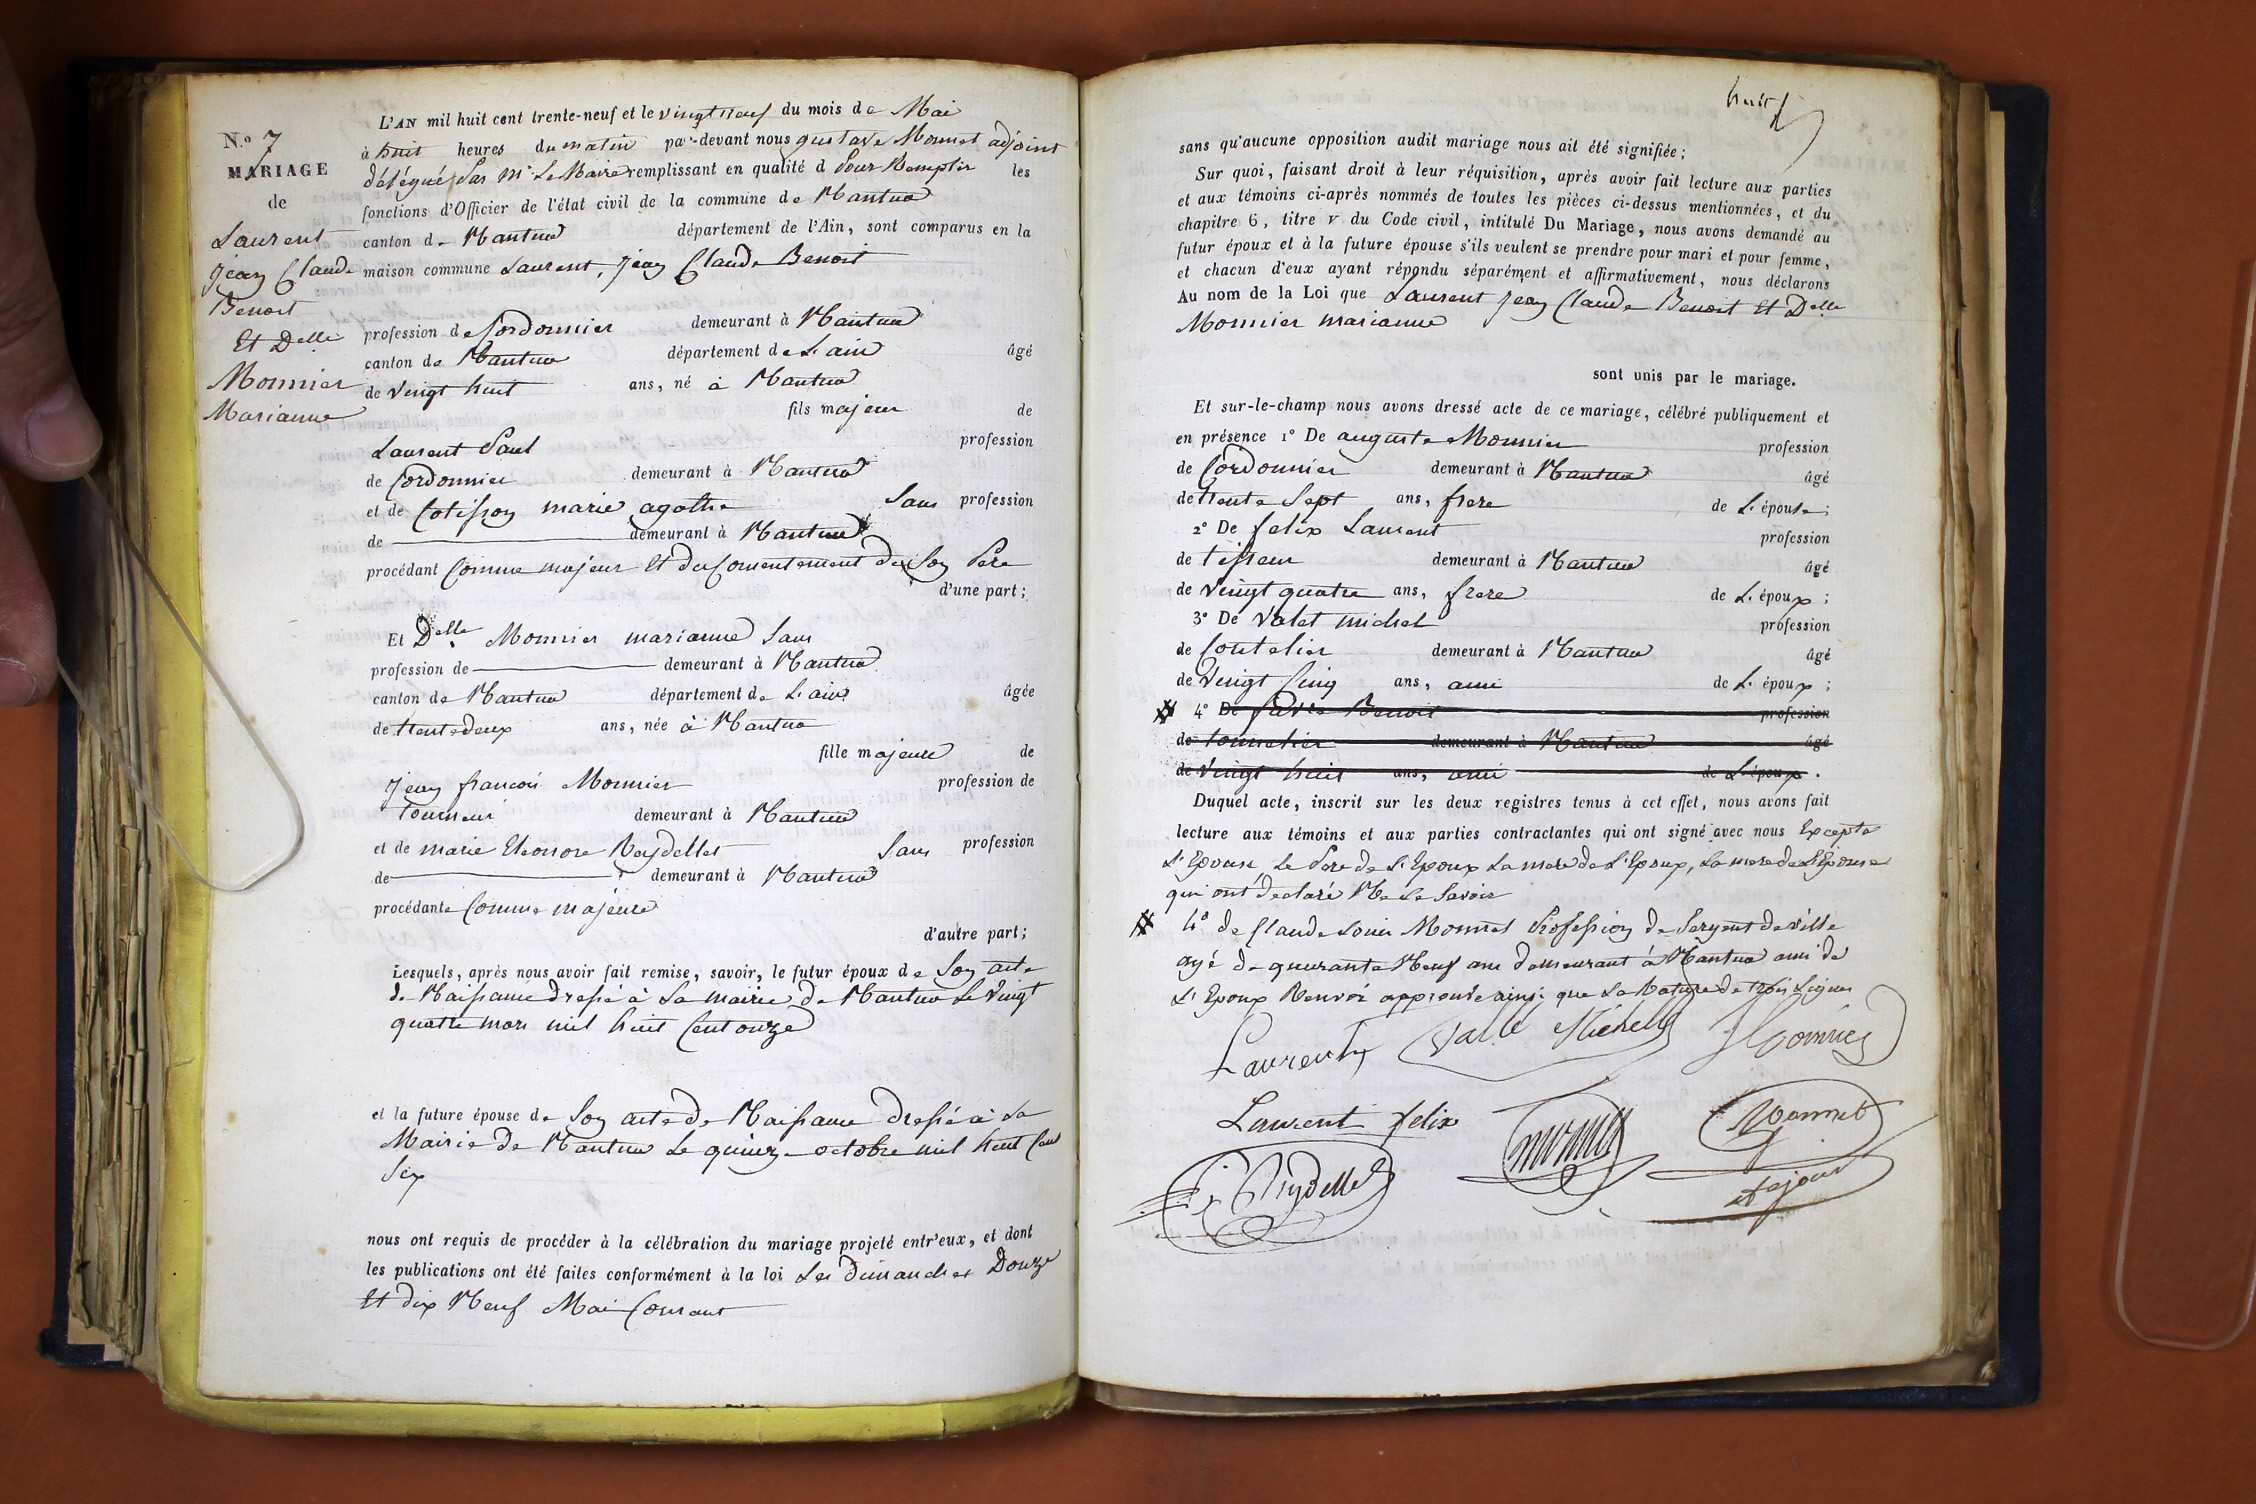 N.o 7
MARIAGE
de
Laurent
Jean Claude
Benoit
Et Delle
Monnier
Marianne
L'AN mil huit cent trente-neuf et le vingt neuf du mois de Mai
à huit heures du matin par-devant nous gustave Monnet adjoint
délégué par Mr Le Maire remplissant en qualité d pour Remplir les
fonctions d'Officier de l'état civil de la commune de Nantua
canton de Nantua département de l'Ain, sont comparus en la
maison commune Laurent, Jean Claude Benoit
profession de Cordonnier demeurant à Nantua
canton de Nantua département de L'ain âgé
de vingt huit ans, né à Nantua
fils majeur de
Laurent Paul profession
de Cordonnier demeurant à Nantua
et de Cotisson marie agathe Sans profession
de demeurant à Nantua
procédant Comme majeur Et du Consentement de Son Père
d'une part;
Et Delle Monnier marianne Sans
profession de demeurant à Nantua
canton de Nantua département de L'ain âgée
de trente deux ans, née à Nantua
fille majeure de
Jean françois Monnier profession de
Tourneur demeurant à Nantua
et de marie Eleonore Reydellet Sans profession
de demeurant à Nantua
procédante Comme majeure
d'autre part;
Lesquels, après nous avoir fait remise, savoir, le futur époux de Son acte
de Naissance dressé à La mairie de Nantua Le vingt
quatre mars mil huit Cent onze
et la future épouse de Son acte de Naissance dressé à La
Mairie de Nantua Le quinze octobre mil huit Cent
Six
nous ont requis de procéder à la célébration du mariage projeté entr'eux, et dont
les publications ont été faites conformément à la loi Les Dimanches Douze
Et dix Neuf Mai Courant
huit
sans qu'aucune opposition audit mariage nous ait été signifiée;
Sur quoi, faisant droit à leur réquisition, après avoir fait lecture aux parties
et aux témoins ci-après nommés de toutes les pièces ci-dessus mentionnées, et du
chapitre 6, titre v du Code civil, intitulé Du Mariage, nous avons demandé au
futur époux et à la future épouse s'ils veulent se prendre pour mari et pour femme,
et chacun d'eux ayant répondu séparément et affirmativement, nous déclarons
Au nom de la Loi que Laurent Jean Claude Benoit Et Delle
Monnier marianne
sont unis par le mariage.
Et sur-le-champ nous avons dressé acte de ce mariage, célébré publiquement et
en présence 1° De auguste Monnier profession
de Cordonnier demeurant à Nantua âgé
de trente Sept ans, frere de L'épouse;
2° De felix Laurent profession
de tisseur demeurant à Nantua âgé
de Vingt quatre ans, frere de L'époux;
3° De Valet michel profession
de Coutelier demeurant à Nantua âgé
de Vingt Cinq ans, ami de L'époux;
4° De favre Benoit profession
de tonnelier demeurant à Nantua âgé
de vingt huit ans, ami de L'époux.
Duquel acte, inscrit sur les deux registres tenus à cet effet, nous avons fait
lecture aux témoins et aux parties contractantes qui ont signé avec nous Excepté
L'Epouse Le Pere de L'Epoux La mere de L'Epoux, La mere de L'Epouse
qui ont déclaré Ne Le Savoir
4° de Claude Louis Monnet Profession de Sergent de ville
agé de quarante Neuf ans demeurant à Nantua ami de
L'Epoux Renvoi approuvé ainsi que La Rature de trois Lignes
Laurent Valle Michelle Monnier
Laurent felix Monnet
Reydellet adjoint